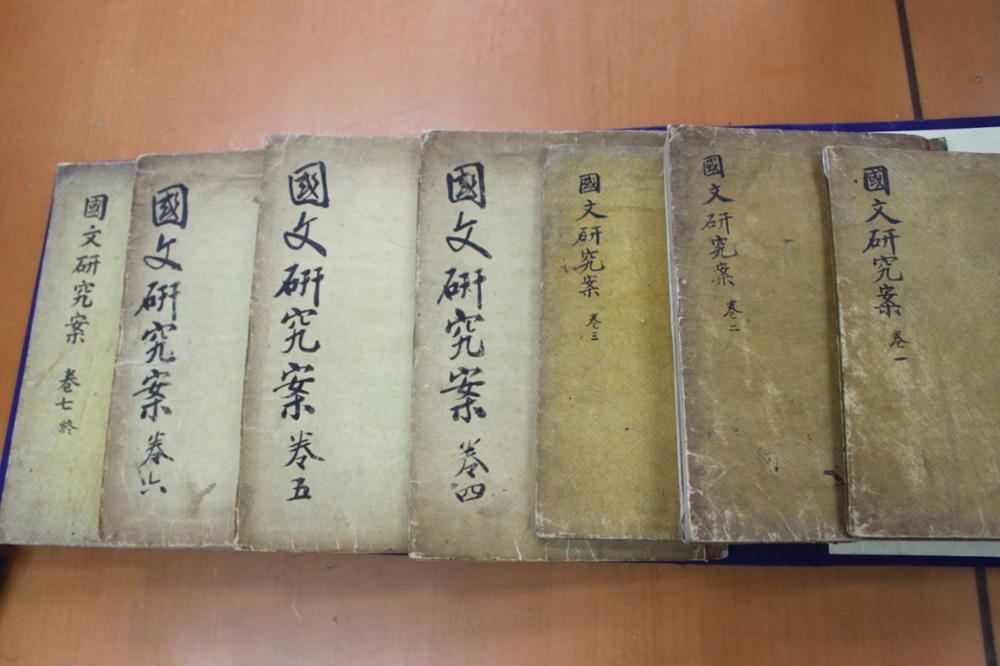 國文研究案 卷一
國文研究案 卷二
國文研究案 卷三
國文研究案 卷四
國文研究案 卷五
國文研究案 卷六
國文研究案 卷七 終